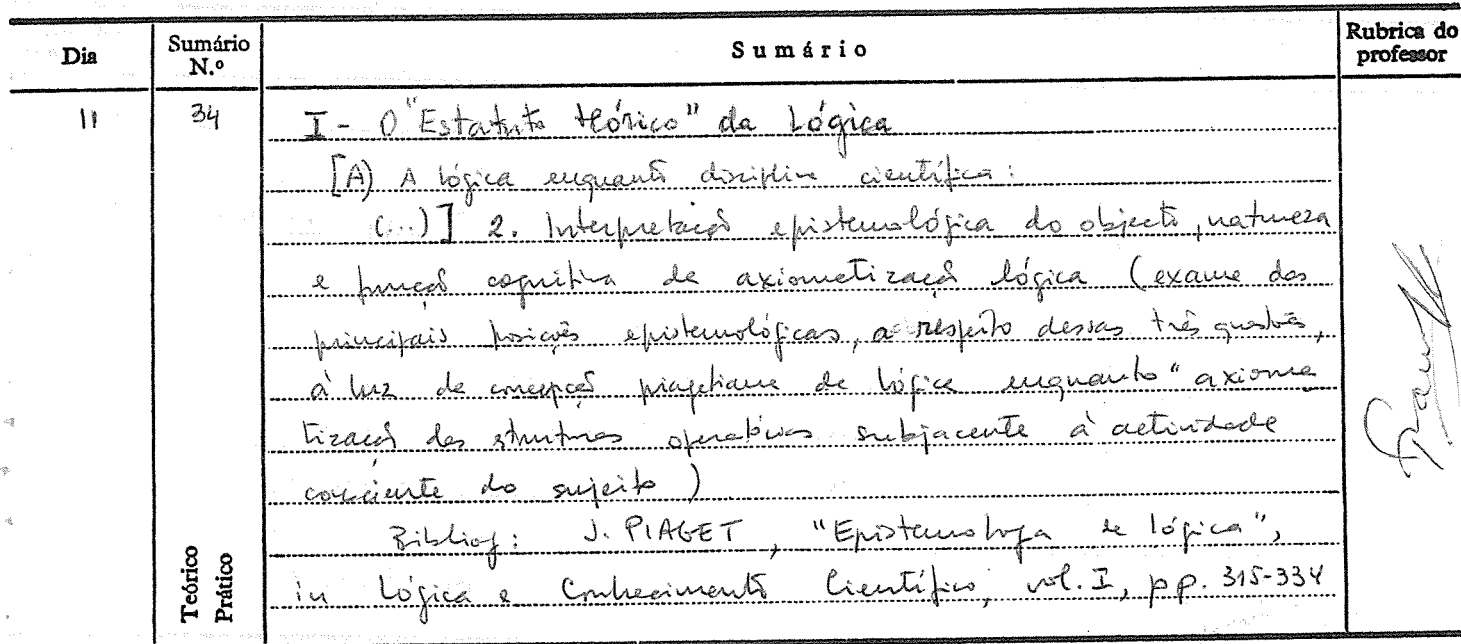 Dia
Sumário N.º
Sumário
Rubrica do professor
11
34
I - O "Estatuto teórico" da Lógica
[A) A lógica enquanto disciplina científica:
(...)] 2. Interpretação epistemológica do objecto, natureza
e função cognitiva da axiomatização lógica (exame das
principais posições epistemológicas, a respeito dessas três questões,
à luz da concepção piagetiana de lógica enquanto "axioma
tização das estruturas operatórias subjacente à actividade
consciente do sujeito)
Bibliog: J. PIAGET, "Epistemologia da lógica",
in Lógica e Conhecimento Científico, vol. I, pp. 315-334
Teórico
Prático